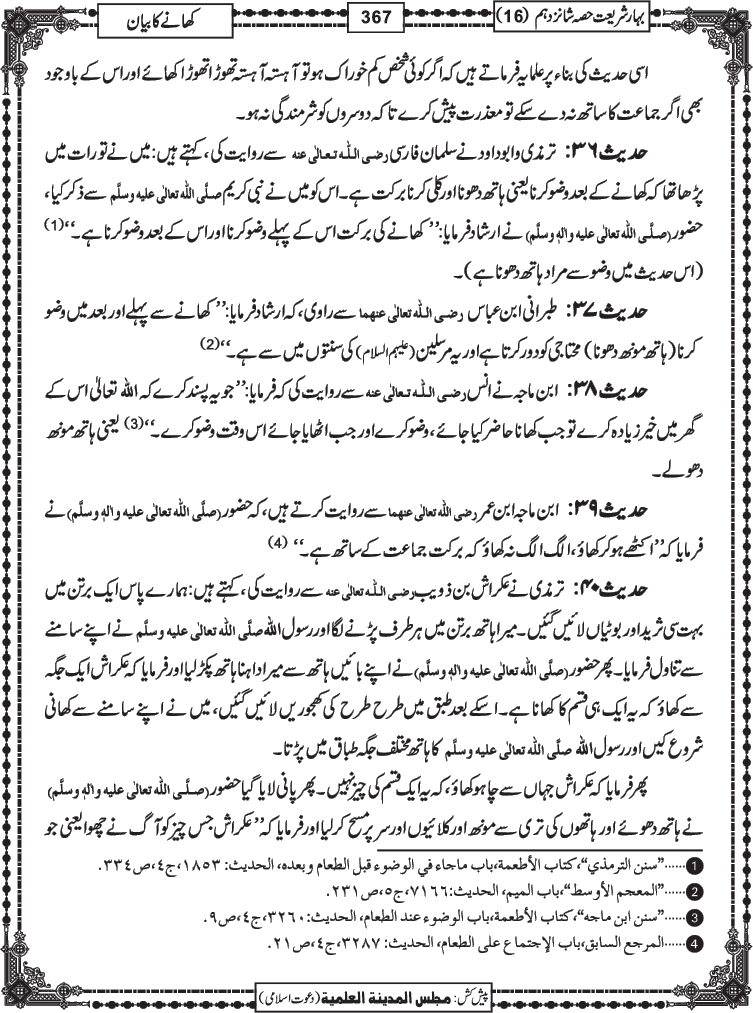 بہارِ شریعت حصہ شانزدہم (16)
367
کھانے کا بیان
اسی حدیث کی بناء پر علما یہ فرماتے ہیں کہ اگر کوئی شخص کم خوراک ہو تو آہستہ آہستہ تھوڑا تھوڑا کھائے اور اس کے باوجود
بھی اگر جماعت کا ساتھ نہ دے سکے تو معذرت پیش کرے تاکہ دوسروں کو شرمندگی نہ ہو۔
حدیث ۳۶: ترمذی وابوداود نے سلمان فارسی رضی اللہ تعالٰی عنہ سے روایت کی، کہتے ہیں: میں نے تورات میں
پڑھا تھا کہ کھانے کے بعد وضو کرنا یعنی ہاتھ دھونا اور کلی کرنا برکت ہے۔ اس کو میں نے نبی کریم صلَّی اللہ تعالٰی علیہ وسلَّم سے ذکر کیا،
حضور (صلَّی اللہ تعالٰی علیہ واٰلہٖ وسلَّم) نے ارشاد فرمایا: ”کھانے کی برکت اس کے پہلے وضو کرنا اور اس کے بعد وضو کرنا ہے۔“ (1)
(اس حدیث میں وضو سے مراد ہاتھ دھونا ہے)۔
حدیث ۳۷: طبرانی ابن عباس رضی اللہ تعالٰی عنہما سے راوی، کہ ارشاد فرمایا: ”کھانے سے پہلے اور بعد میں وضو
کرنا (ہاتھ مونھ دھونا) محتاجی کو دور کرتا ہے اور یہ مرسلین (علیہم السلام) کی سنتوں میں سے ہے۔“ (2)
حدیث ۳۸: ابن ماجہ نے انس رضی اللہ تعالٰی عنہ سے روایت کی کہ فرمایا: ”جو یہ پسند کرے کہ اللہ تعالیٰ اس کے
گھر میں خیر زیادہ کرے تو جب کھانا حاضر کیا جائے، وضو کرے اور جب اٹھایا جائے اس وقت وضو کرے۔“ (3) یعنی ہاتھ مونھ
دھولے۔
حدیث ۳۹: ابن ماجہ ابن عمر رضی اللہ تعالٰی عنہما سے روایت کرتے ہیں، کہ حضور (صلَّی اللہ تعالٰی علیہ واٰلہٖ وسلَّم) نے
فرمایا کہ ”اکٹھے ہو کر کھاؤ، الگ الگ نہ کھاؤ کہ برکت جماعت کے ساتھ ہے۔“ (4)
حدیث ۴۰: ترمذی نے عکراش بن ذویب رضی اللہ تعالٰی عنہ سے روایت کی، کہتے ہیں: ہمارے پاس ایک برتن میں
بہت سی ثرید اور بوٹیاں لائیں گئیں۔ میرا ہاتھ برتن میں ہر طرف پڑنے لگا اور رسول اللہ صلَّی اللہ تعالٰی علیہ وسلَّم نے اپنے سامنے
سے تناول فرمایا۔ پھر حضور (صلَّی اللہ تعالٰی علیہ واٰلہٖ وسلَّم) نے اپنے بائیں ہاتھ سے میرا داہنا ہاتھ پکڑ لیا اور فرمایا کہ عکراش ایک جگہ
سے کھاؤ کہ یہ ایک ہی قسم کا کھانا ہے۔ اسکے بعد طبق میں طرح طرح کی کھجوریں لائیں گئیں، میں نے اپنے سامنے سے کھانی
شروع کیں اور رسول اللہ صلَّی اللہ تعالٰی علیہ وسلَّم کا ہاتھ مختلف جگہ طباق میں پڑتا۔
پھر فرمایا کہ عکراش جہاں سے چاہو کھاؤ، کہ یہ ایک قسم کی چیز نہیں۔ پھر پانی لایا گیا حضور (صلَّی اللہ تعالٰی علیہ واٰلہٖ وسلَّم)
نے ہاتھ دھوئے اور ہاتھوں کی تری سے مونھ اور کلائیوں اور سر پر مسح کر لیا اور فرمایا کہ ”عکراش جس چیز کو آگ نے چھوا یعنی جو
1 ......”سنن الترمذي“، کتاب الأطعمة، باب ماجاء في الوضوء قبل الطعام وبعده، الحدیث: ١٨٥٣، ج٤، ص٣٣٤.
2 ......”المعجم الأوسط“، باب المیم، الحدیث: ٧١٦٦، ج٥، ص٢٣١.
3 ......”سنن ابن ماجه“، کتاب الأطعمة، باب الوضوء عند الطعام، الحدیث: ٣٢٦٠، ج٤، ص٩.
4 ......المرجع السابق، باب الإجتماع علی الطعام، الحدیث: ٣٢٨٧، ج٤، ص٢١.
پیش کش: مجلس المدینۃ العلمیۃ (دعوت اسلامی)